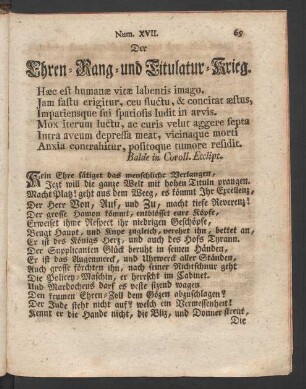 Num. XVII. 69
Der
Ehren-Rang-und Titulatur-Krieg.
Hæc est humanæ vitæ labentis imago,
Jam fastu erigitur, ceu fluctu, & concitat æstus,
Impatiensque sui spatiosis ludit in arvis.
Mox iterum luctu, ac curis velut aggere septa
Intra aveum depressa meat, vicinaque morti
Anxia contrahitur, positoque tumore residit.
Balde in Coroll. Eclipt.
Kein Ehre sättiget das menschliche Verlangen,
Jezt will die ganze Welt mit hohen Tituln prangen.
Macht Plaz! geht aus dem Weeg, es kömmt Ihr Excellenz,
Der Herr Von, Auf, und Zu, macht tiefe Reverenz!
Der grosse Hamon kömmt, entblösset eure Köpfe,
Erweiset ihme Respect ihr niedrigen Geschöpfe,
Beugt Haupt, und Knye zugleich, verehrt ihn, bettet an,
Er ist des Königs Herz, und auch des Hofs Tyrann.
Der Supplicanten Glück beruht in seinen Händen,
Er ist das Augenmerck, und Uhrwerck aller Ständen,
Auch grosse förchten ihn, nach seiner Richtschnur geht
Die Policey-Maschin, er herrscht im Cabinet.
Und Mardocheus darf es veste sizend wagen
Den krumen Ehren-Zoll dem Gözen abzuschlagen?
Der Jude steht nicht auf? welch ein Vermessenheit!
Kennt er die Hande nicht, die Bliz, und Donner streut,
Die